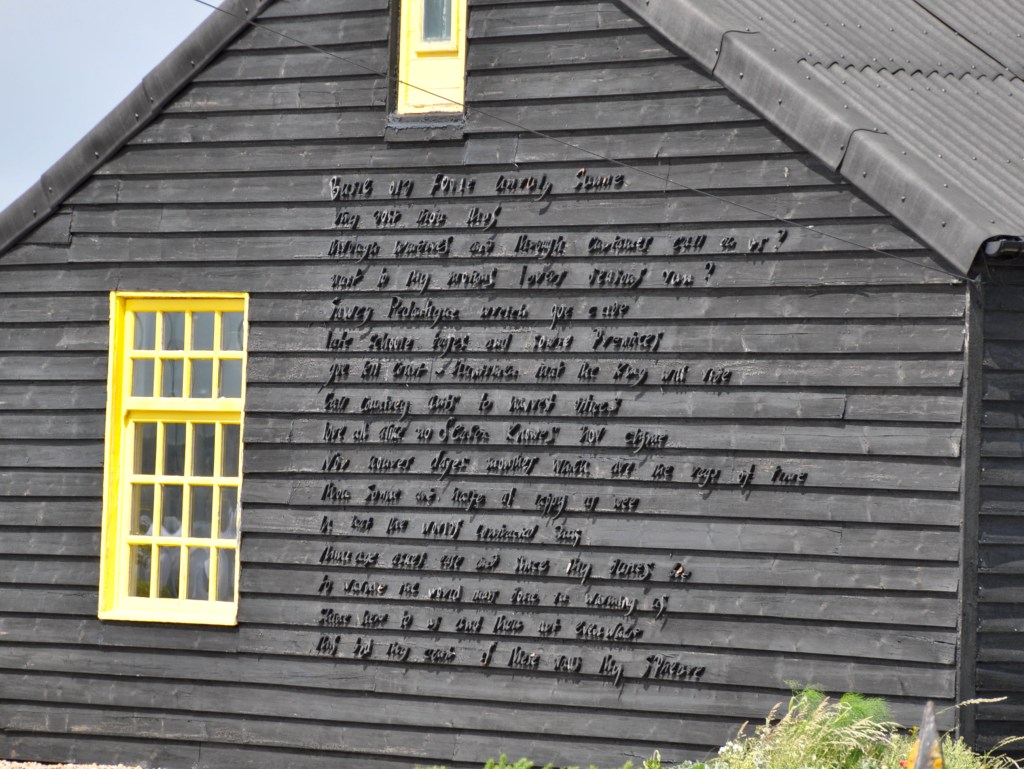 Busie old Foole unruly Sunne
Why dost thou thus
through windowes and through curtaines call on us?
must to thy motions lovers seasons run?
Sawcy Pedantique wretch goe chide
late Schoole boyes and sowre Prentices
goe tell Court-Huntsmen that the King will ride
Call countrey ants to harvest offices
love all alike no season knowes nor clyme
Nor houres dayes months which are the rags of time
Thou Sunne art halfe as happy as wee
In that the world's contracted thus
Thine age askes ease and since thy duties bee
to warme the world that's done in warming us
Shine here to us and thou art everywhere
this bed thy center is these walls thy Spheare